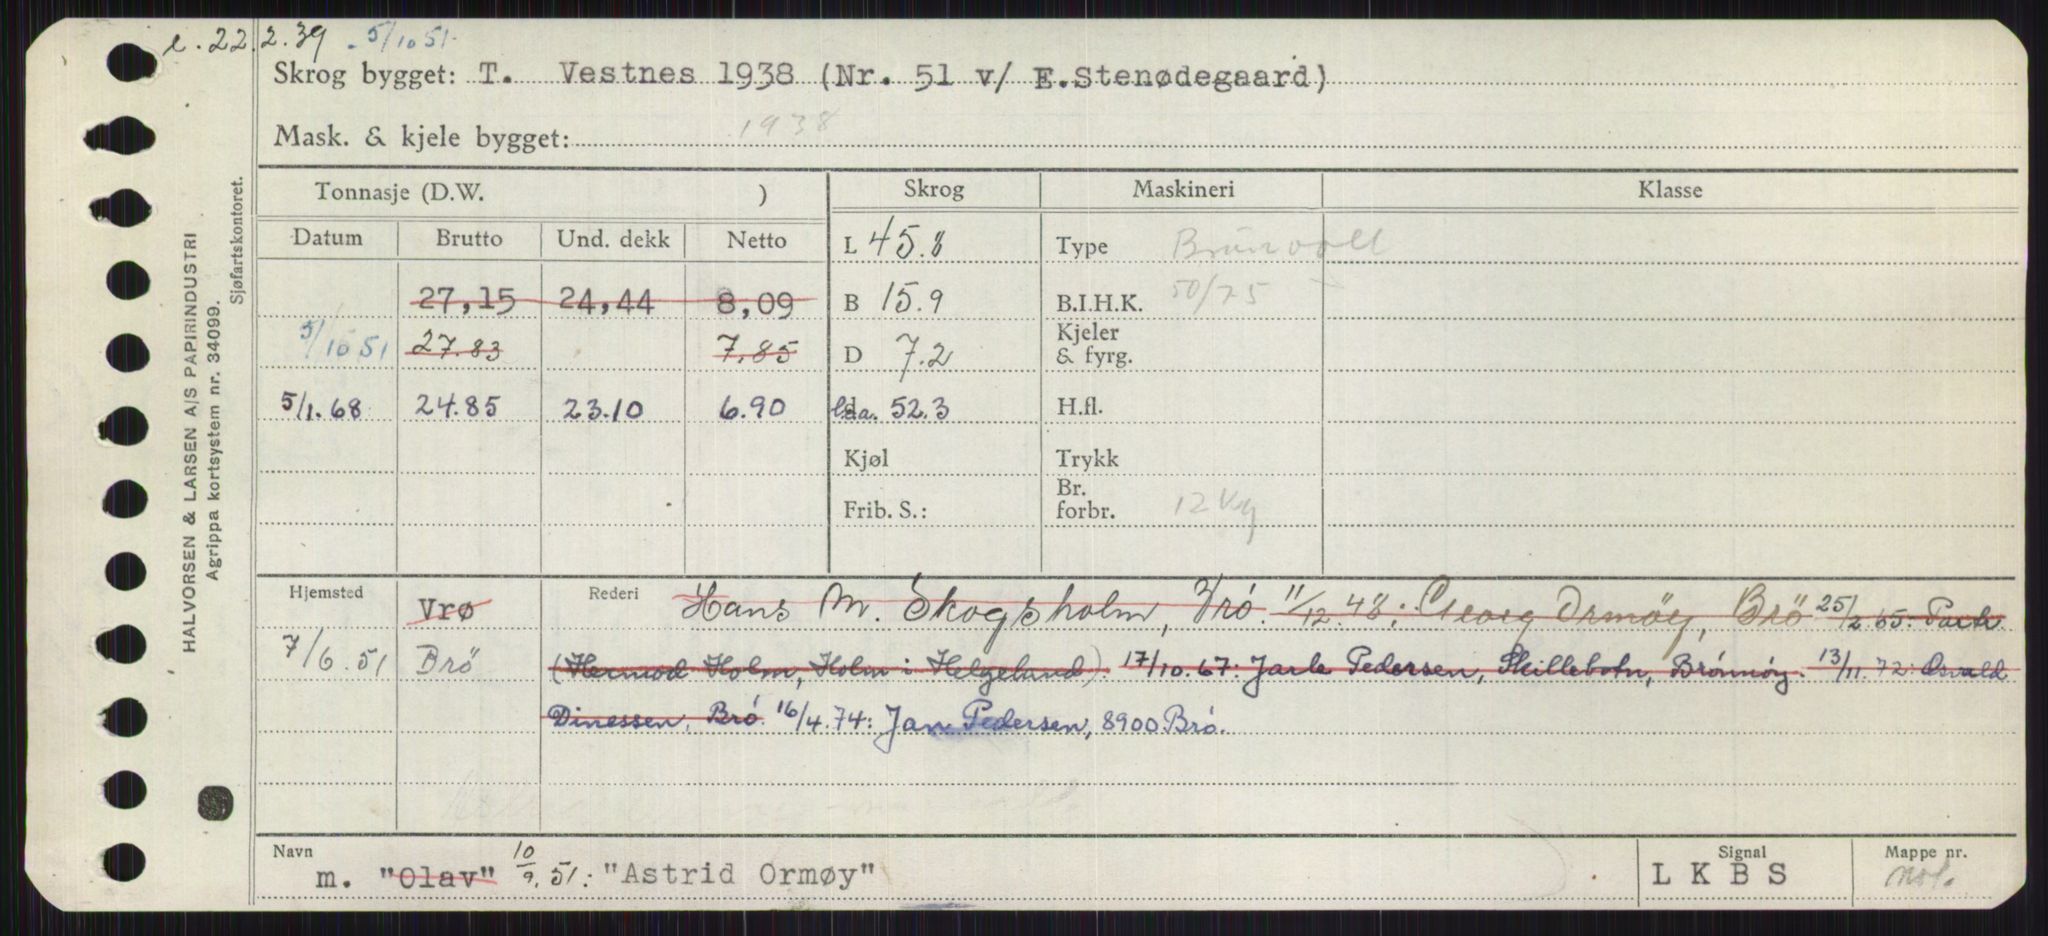 e. 22.2.39 . 5/10 51.
Skrog bygget: T. Vestnes 1938 (Nr. 51 v/ E.Stenødegaard)
Mask. & kjele bygget: 1938
HALVORSEN & LARSEN A/S PAPIRINDUSTRI
Agrippa kortsystem nr. 34099.
Sjøfartskontoret.
Tonnasje (D.W. ) Skrog Maskineri Klasse
Datum Brutto Und. dekk Netto L 45.8 Type Brunvoll
27,15 24,44 8,09 B 15.9 B.I.H.K. 50/75
5/10 51 27.83 7,85 D 7.2 Kjeler & fyrg.
5/1.68 24.85 23.10 6.90 l.o.a. 52.3 H.fl.
Kjøl Trykk
Frib. S.: Br. forbr. 12 kg
Hjemsted Vrø Rederi Hans M. Skogsholm, Vrö. 11/12.48: Georg Ormöy, Brö 25/2.65: Part.
7/6.51 Brö (Hermod Holm, Holm i Helgeland). 17/10.67: Jarle Pedersen, Skillebotn, Brønnøy. 13/11.72: Osvald
Dinessen, Brö. 16/4.74: Jan Pedersen, 8900 Brö.
Navn Signal Mappe nr.
m. "Olav" 10/9.51: "Astrid Ormøy" L K B S not.